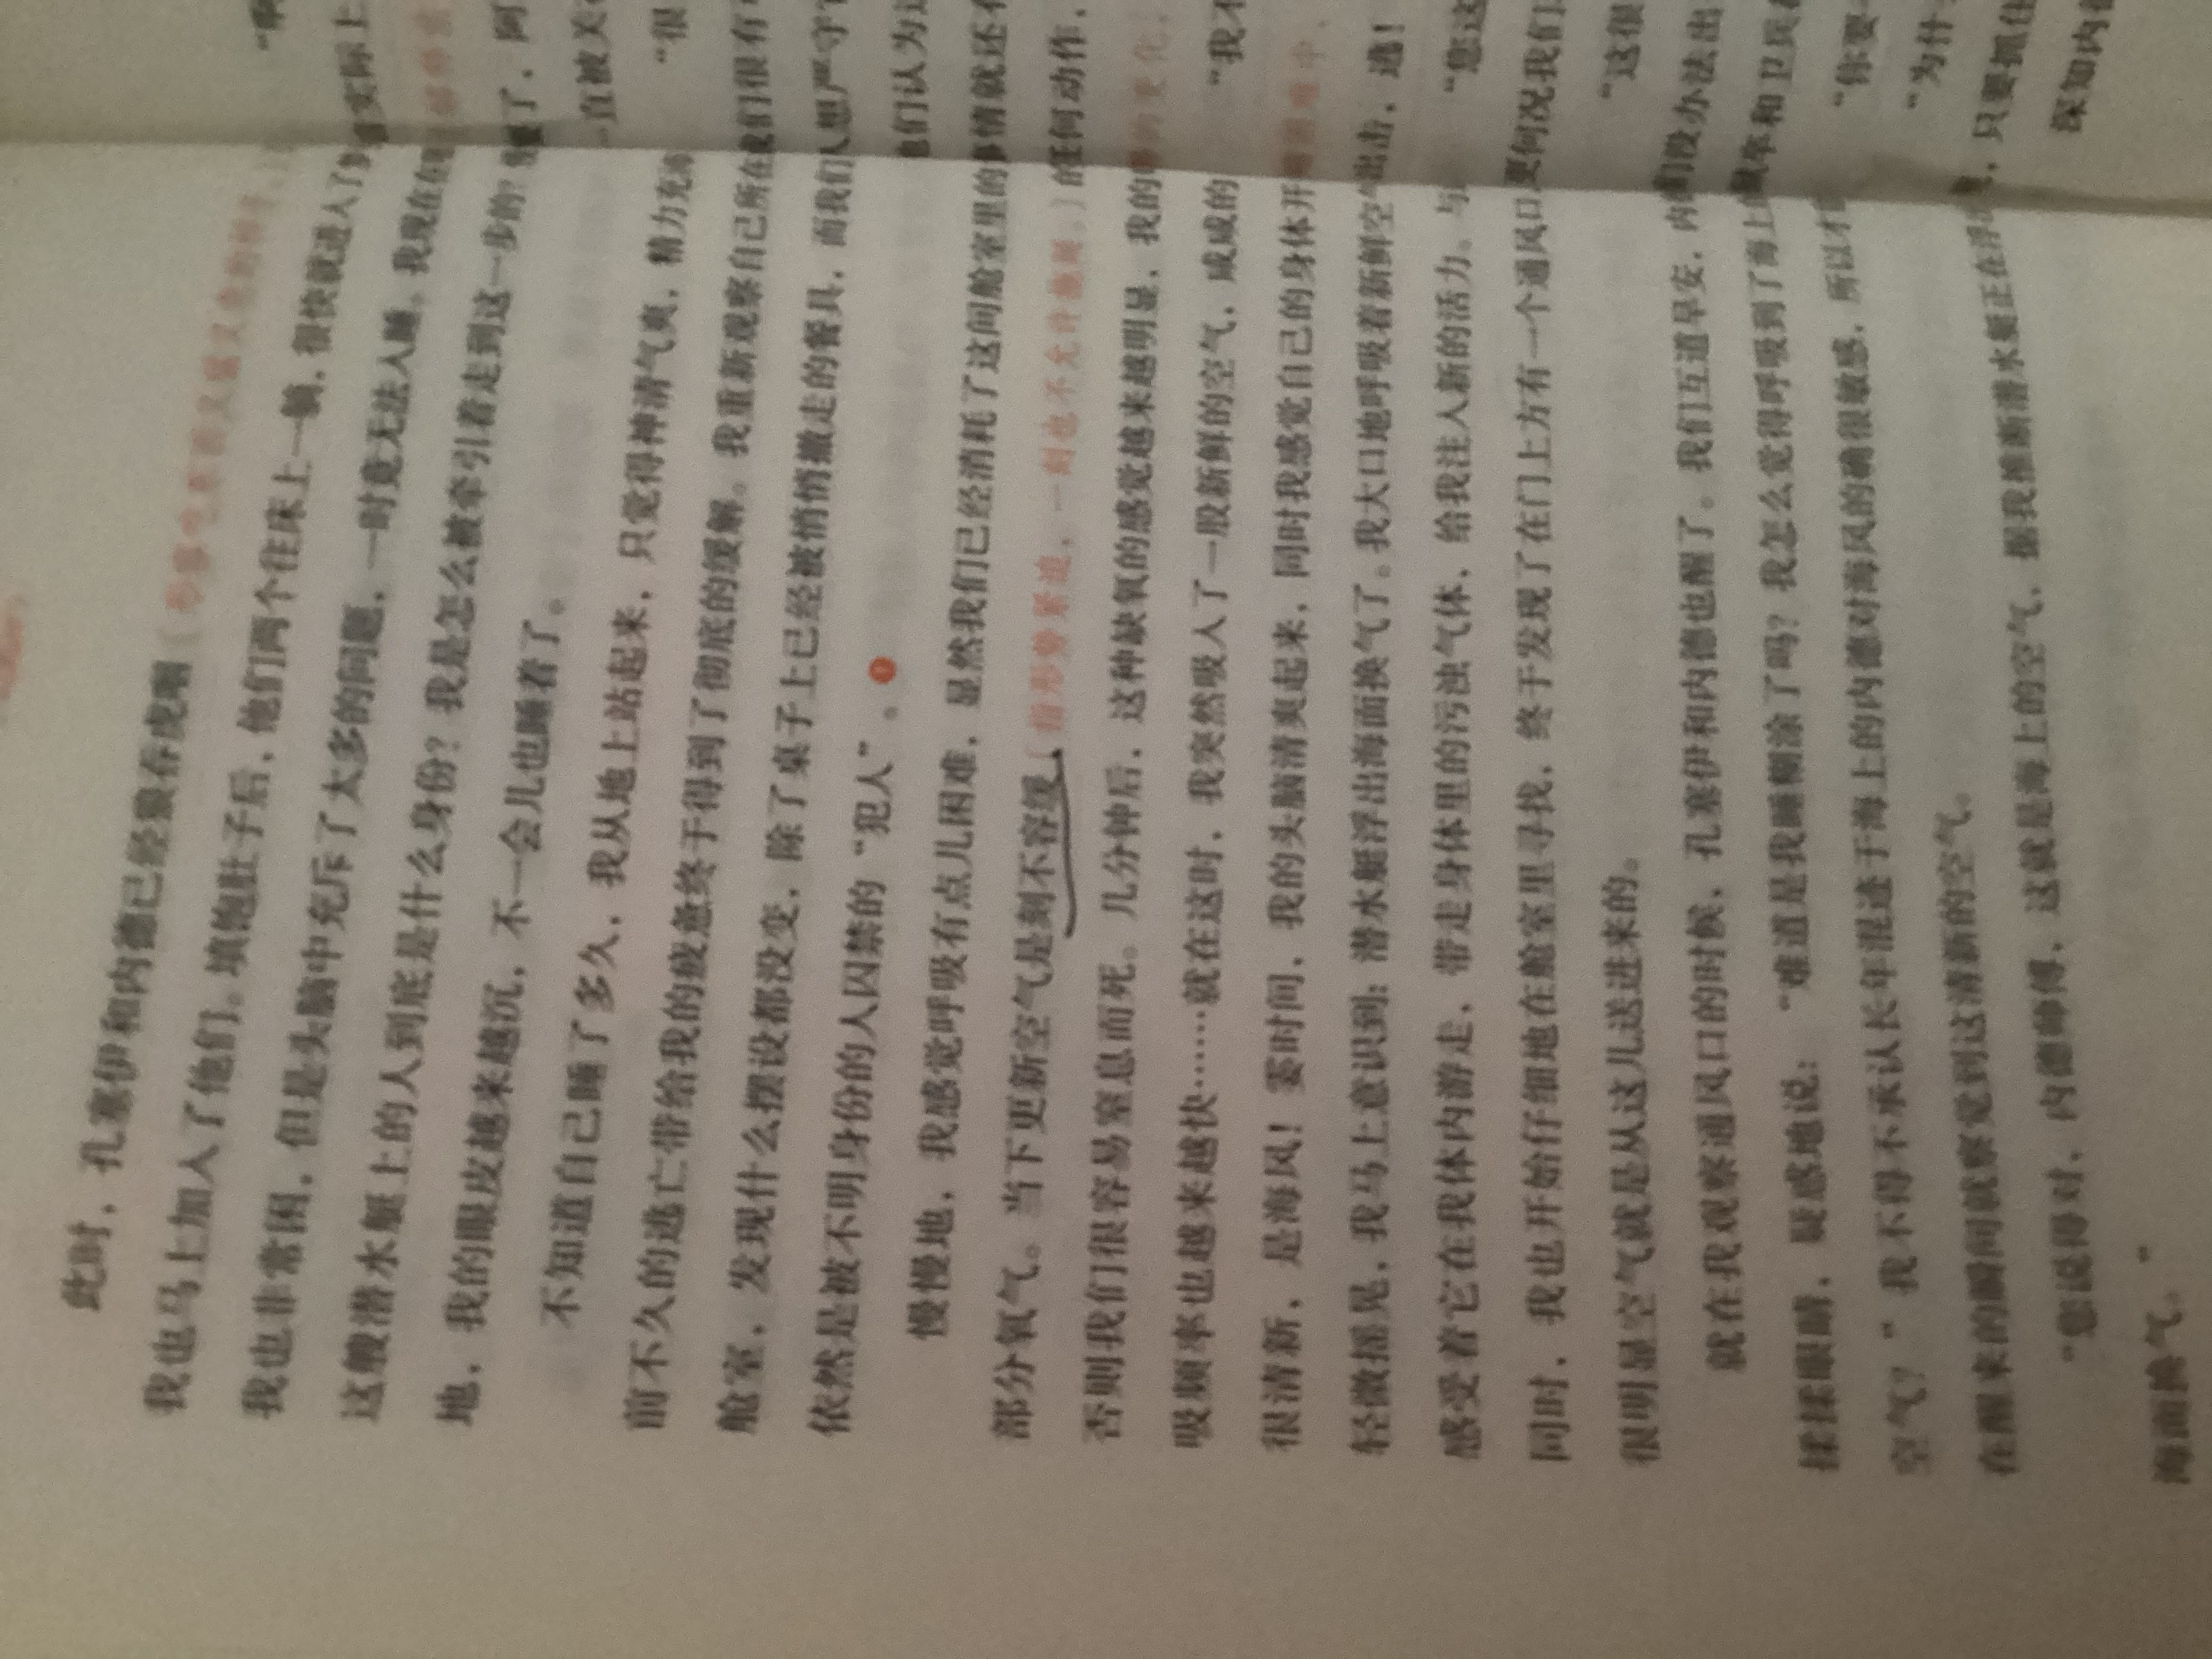 此时，孔塞伊和内德已经狼吞虎咽
我也马上加入了他们。填饱肚子后，他们两个往床上一躺，很快就进入了
我也非常困，但是头脑中充斥了太多的问题，一时竟无法入睡。我现在在
这艘潜水艇上的人到底是什么身份？我是怎么被牵引着走到这一步的？
地，我的眼皮越来越沉，不一会儿也睡着了。
不知道自己睡了多久，我从地上站起来，只觉得神清气爽，精力充
前不久的逃亡带给我的疲惫终于得到了彻底的缓解。我重新观察自己所在
舱室，发现什么摆设都没变，除了桌子上已经被悄悄撤走的餐具，而我们
依然是被不明身份的人囚禁的“犯人”。
慢慢地，我感觉呼吸有点儿困难，显然我们已经消耗了这间舱室里的
部分氧气。当下更新空气是刻不容缓（指形势紧迫，一刻也不允许拖延。）的
否则我们很容易窒息而死。几分钟后，这种缺氧的感觉越来越明显，我的
吸频率也越来越快……就在这时，我突然吸入了一股新鲜的空气，咸咸的
很清新，是海风！霎时间，我的头脑清爽起来，同时我感觉自己的身体开
轻微摇晃，我马上意识到：潜水艇浮出海面换气了。我大口地呼吸着新鲜空
感受着它在我体内游走，带走身体里的污浊气体，给我注入新的活力。与
同时，我也开始仔细地在舱室里寻找，终于发现了在门上方有一个通风口
很明显空气就是从这儿送进来的。
就在我观察通风口的时候，孔塞伊和内德也醒了。我们互道早安，内
揉揉眼睛，疑惑地说：“难道是我睡糊涂了吗？我怎么觉得呼吸到了海上
空气？”我不得不承认长年混迹于海上的内德对海风的确很敏感，所以才
在醒来的瞬间就察觉到这清新的空气。
“您说得对，内德师傅，这就是海上的空气，据我推断潜水艇正在浮
海面换气。”
“啊
实际上
了，阿
一直被关
“很
们很有
人想严守
他们认为这
事情就还不
任何动作，
“我不
出击，逃！
“您这
更何况我们
“这很
们没办法出
和卫兵
“你要
“为什
，只要抓住
深知内